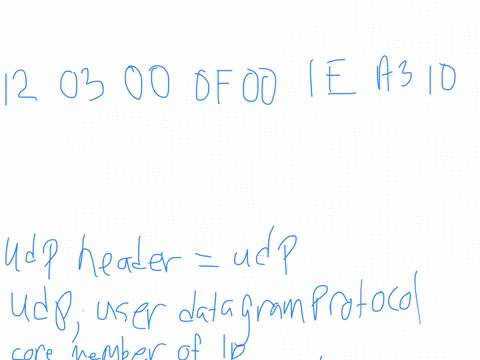 12 03 00 0F 00 1E A3 10
udp header = udp
udp; user datagram Protocol
core member of IP